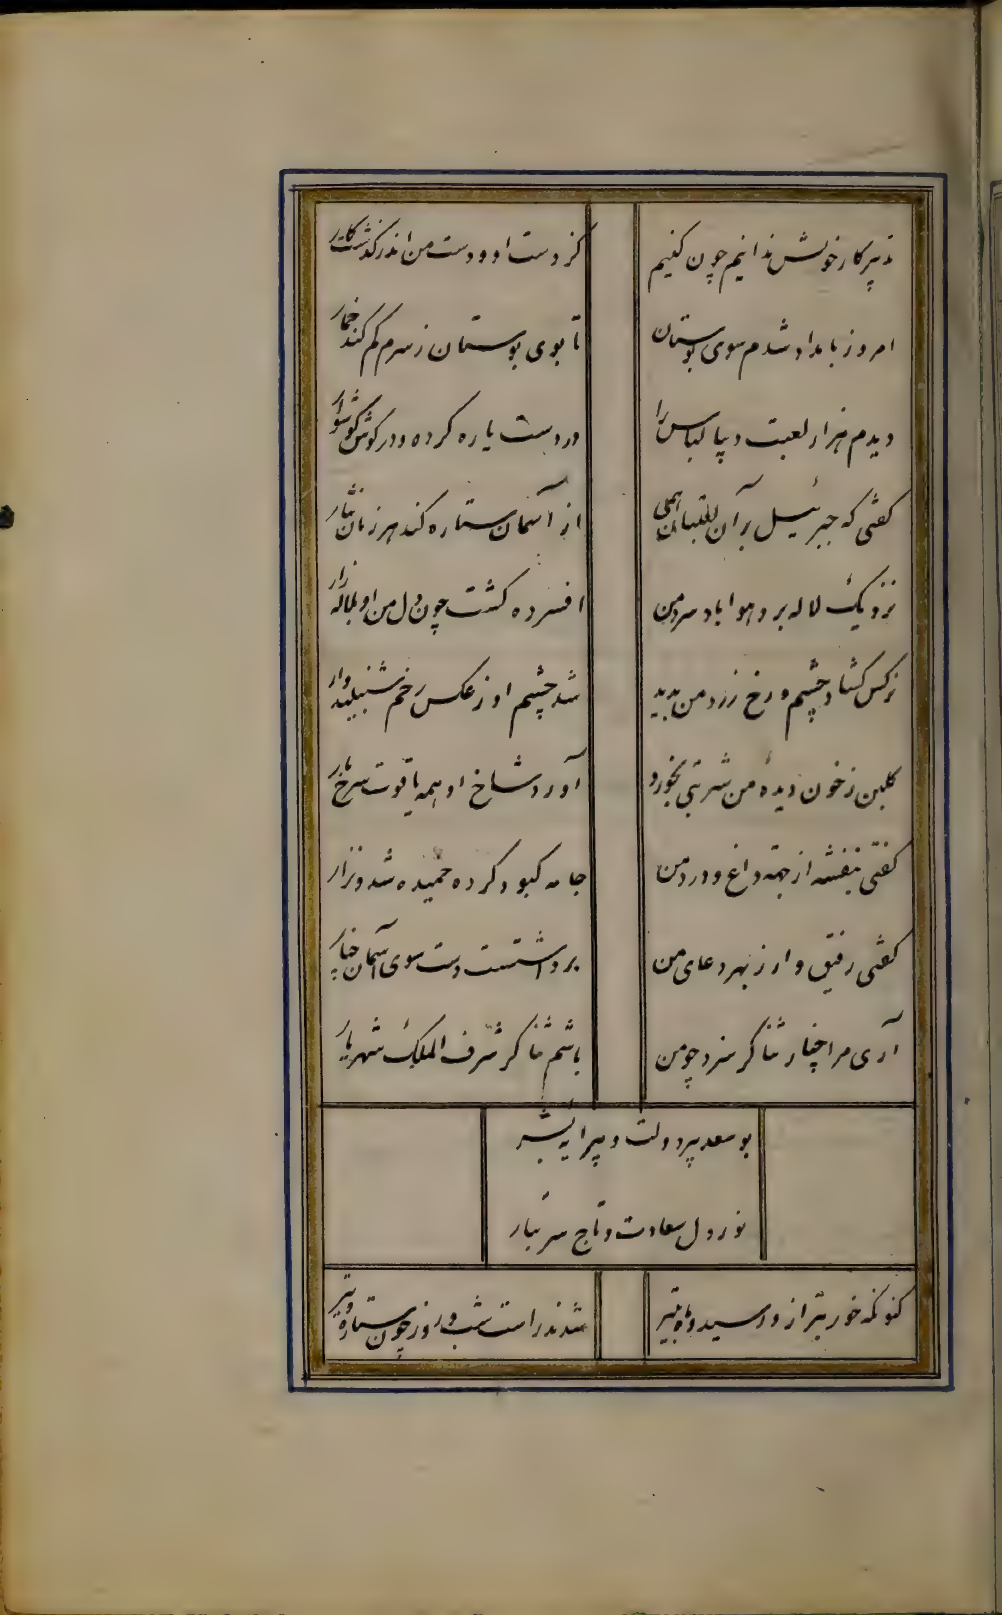 تدبیر کار خویش ندانیم چون کنیم کز دست او و دست من اندر گذشت کار
امروز بامداد شدم سوی بوستان تا بوی بوستان ز سرم کم کند خمار
دیدم هزار لعبت دیبا لباس را در دست یاره کرده و در گوش گوشوار
گفتی که جبرئیل بر آن لعبتان همی از آسمان ستاره کند هر زمان نثار
نزدیک لاله برد هوا باد سرد من افسرده گشت چون دل من او بلاله زار
نرکس کشاد چشم و رخ زرد من بدید شد چشم او ز عکس رخم شنبلید وار
کلبن ز خون دیدهٔ من شربتی بخورد آورد شاخ او همه یاقوت سرخ بار
کفتی بنفشه از جهة داغ و درد من جامه کبود کرده خمیده شد و نزار
کفتی رفیق وار ز بهر دعای من برداشتست دست سوی آسمان چنار
آری مرا چنار ثناکر سزد چو من باشم ثناکر شرف الملک شهریار
بوسعد پیر دولت و پیرایهٔ
نور دل سعادت و تاج سر تبار
کنونکه خور بترازو رسید و ماه بتیر شدند راست شب و روز چون ستاره و تیر